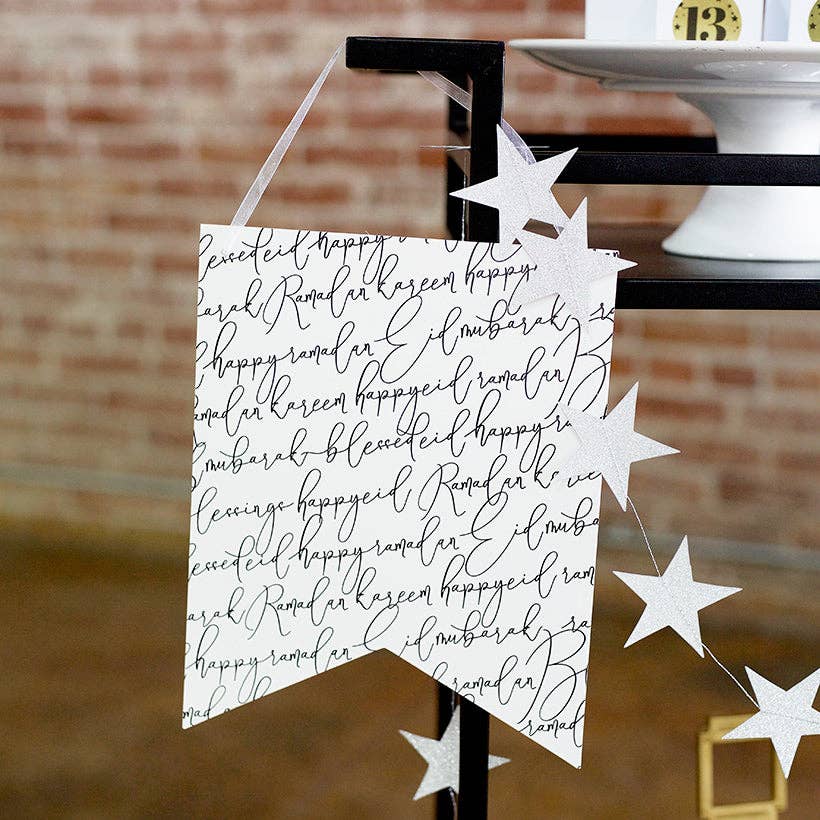 13
blessedeid happy
mubarak Ramadan kareem happy
happyramadan Eid mubarak ra
ramadan kareem happyeid ramadan B
mubarak blessedeid happy ra
blessings happyeid Ramadan k
blessedeid happyramadan Eid muba
arak Ramadan kareem happyeid ram
happyramadan Eid mubarak ra
mad ramadan B
ramad